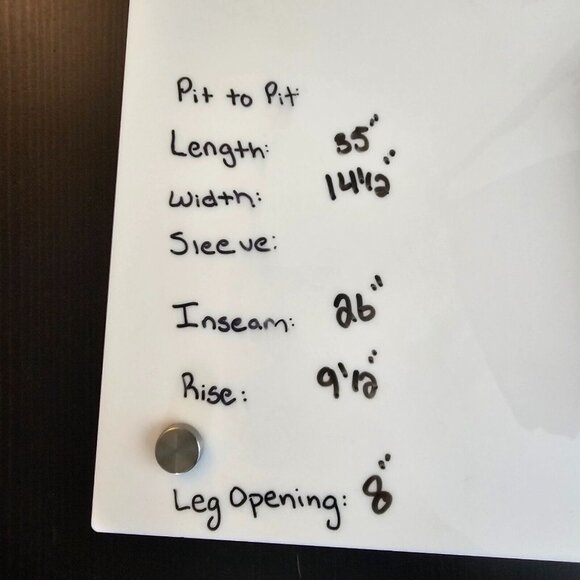 Pit to Pit:
Length: 35"
Width: 14 1/2"
Sleeve:
Inseam: 26"
Rise: 9 1/2"
Leg Opening: 8"